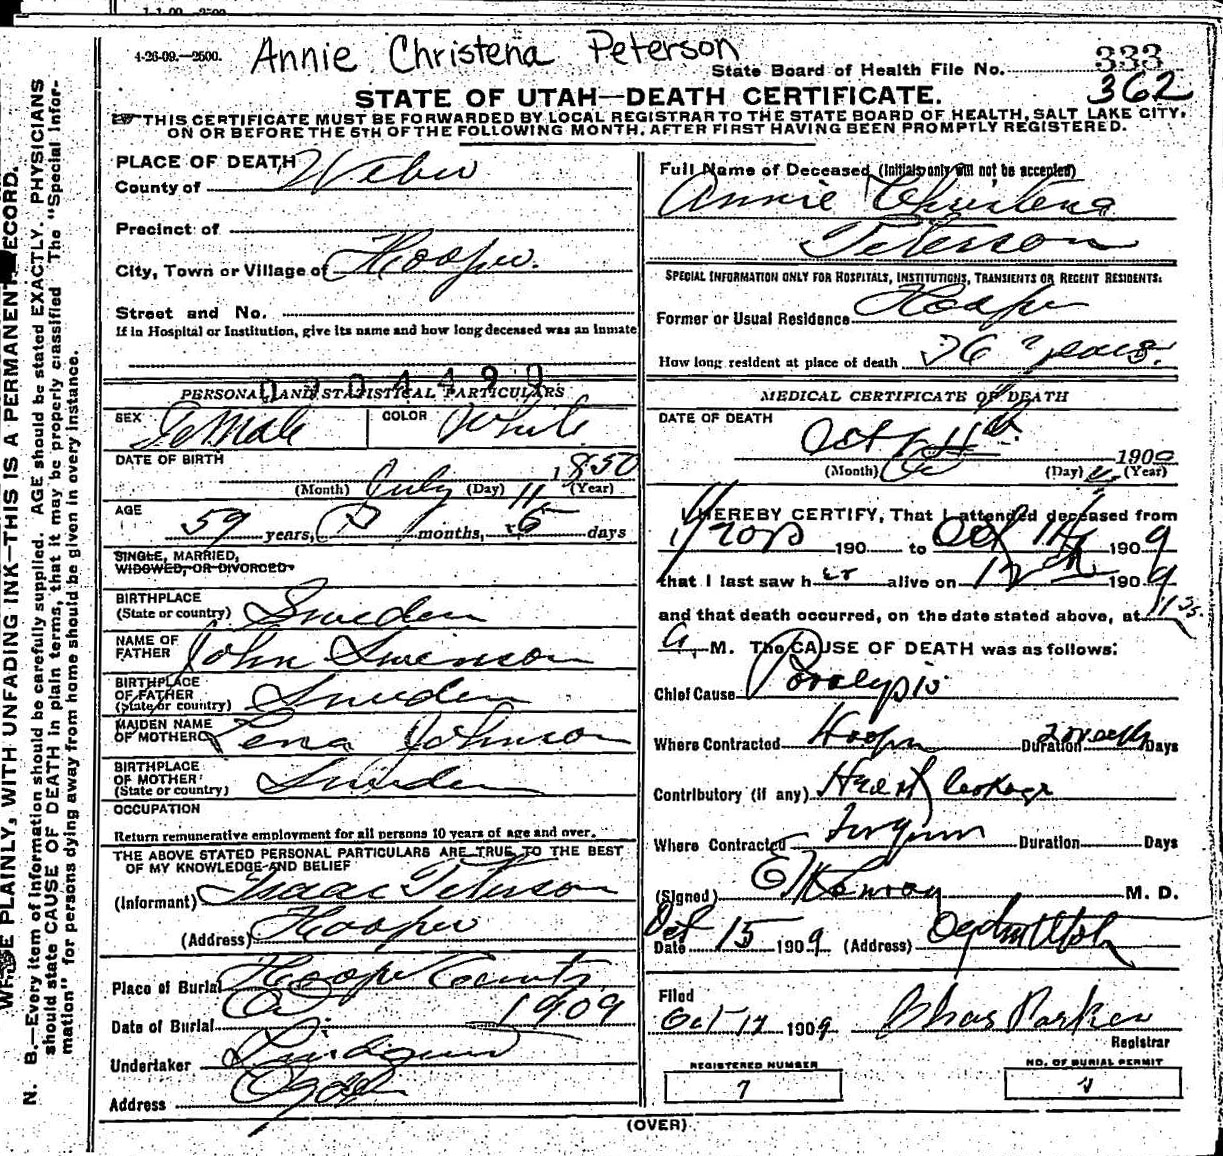 1-1-09 2500
4-26-09.—2500. Annie Christena Peterson
State Board of Health File No. 333
362
STATE OF UTAH—DEATH CERTIFICATE.
THIS CERTIFICATE MUST BE FORWARDED BY LOCAL REGISTRAR TO THE STATE BOARD OF HEALTH, SALT LAKE CITY,
ON OR BEFORE THE 5TH OF THE FOLLOWING MONTH, AFTER FIRST HAVING BEEN PROMPTLY REGISTERED.
PLACE OF DEATH
County of Weber
Precinct of
City, Town or Village of Hooper.
Street and No.
If in Hospital or Institution, give its name and how long deceased was an inmate
0904499
PERSONAL AND STATISTICAL PARTICULARS
SEX Female COLOR White
DATE OF BIRTH
July 11 1850
(Month) (Day) (Year)
AGE
59 years, months, days
SINGLE, MARRIED,
WIDOWED, OR DIVORCED
BIRTHPLACE
(State or country) Sweden
NAME OF
FATHER John Swenson
BIRTHPLACE
OF FATHER
(State or country) Sweden
MAIDEN NAME
OF MOTHER Lena Johnson
BIRTHPLACE
OF MOTHER
(State or country) Sweden
OCCUPATION
Return remunerative employment for all persons 10 years of age and over.
THE ABOVE STATED PERSONAL PARTICULARS ARE TRUE TO THE BEST
OF MY KNOWLEDGE AND BELIEF
(Informant) Isaac Peterson
(Address) Hooper
Place of Burial Hooper
Date of Burial 1909
Undertaker Lindquist
Address Ogden
Full Name of Deceased (Initials only will not be accepted)
Annie Christena
Peterson
SPECIAL INFORMATION ONLY FOR HOSPITALS, INSTITUTIONS, TRANSIENTS OR RECENT RESIDENTS:
Former or Usual Residence Hooper
How long resident at place of death 36 years.
MEDICAL CERTIFICATE OF DEATH
DATE OF DEATH
Oct 1909
(Month) (Day) (Year)
I HEREBY CERTIFY, That I attended deceased from
190 to Oct 1909
that I last saw her alive on 12th 1909
and that death occurred, on the date stated above, at 11
a M. The CAUSE OF DEATH was as follows:
Chief Cause Paralysis
Where Contracted Hooper Duration Days
Contributory (if any) Heart leakage
Where Contracted Duration Days
(Signed) E Conroy M. D.
Date Oct 15 1909 (Address) Ogden Utah
Filed
Oct 17 1909 Chas Parker
Registrar
REGISTERED NUMBER
7
NO. OF BURIAL PERMIT
(OVER)
PLAINLY, WITH UNFADING INK—THIS IS A PERMANENT RECORD.
N. B.—Every item of information should be carefully supplied. AGE should be stated EXACTLY. PHYSICIANS
should state CAUSE OF DEATH in plain terms, that it may be properly classified The "Special Infor-
mation" for persons dying away from home should be given in every instance.